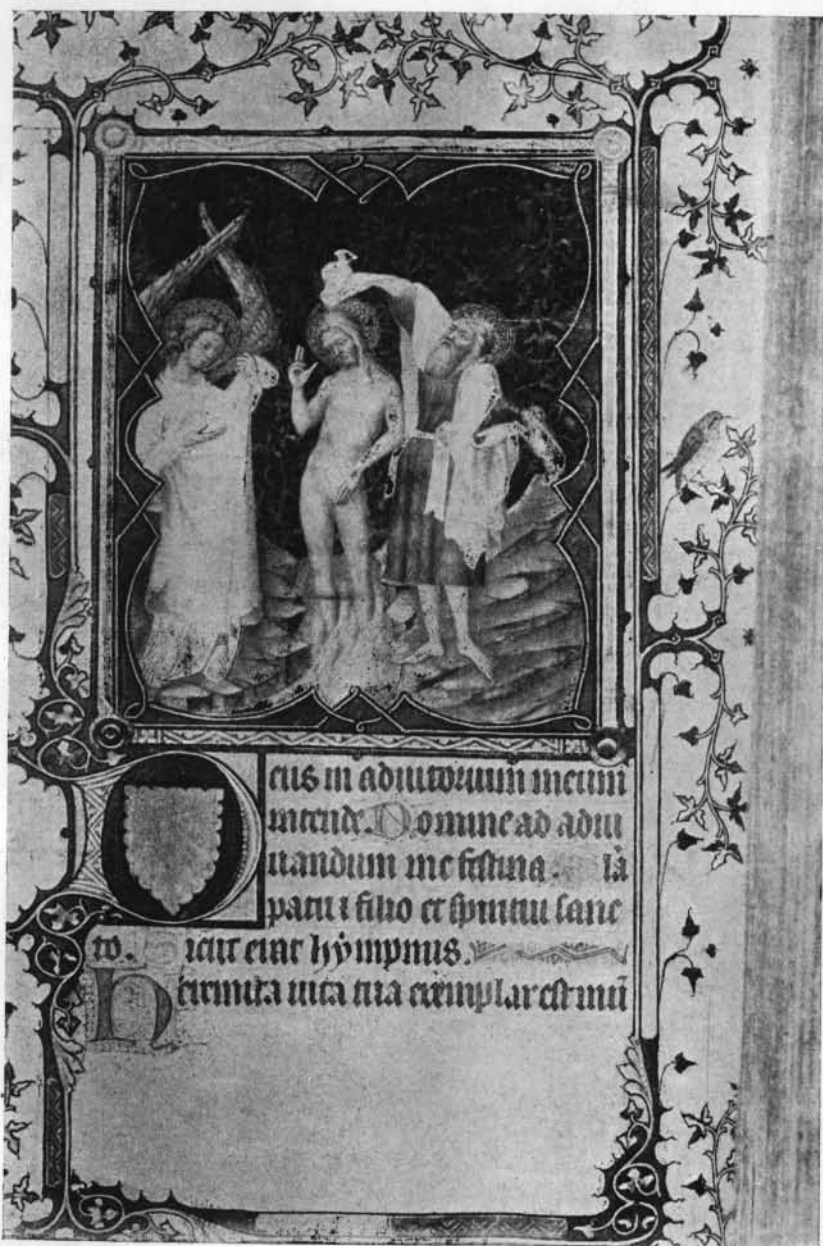 Deus in adiutorium meum
intende. Domine ad adiu
uandum me festina. la
patri & filio et spiritui sanc
to. Sicut erat hympnus.
Heremita uita tua exemplar est